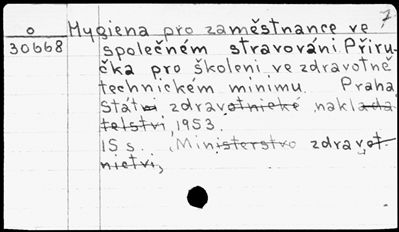 7
o Hygiena pro zaměstnance ve
30668 společném stravování. Příru-
čka pro školeni ve zdravotně
technickém minimu. Praha,
Státni zdravotnické naklada
telstvi, 1953.
15 s. Ministerstvo zdravot-
nictvi,